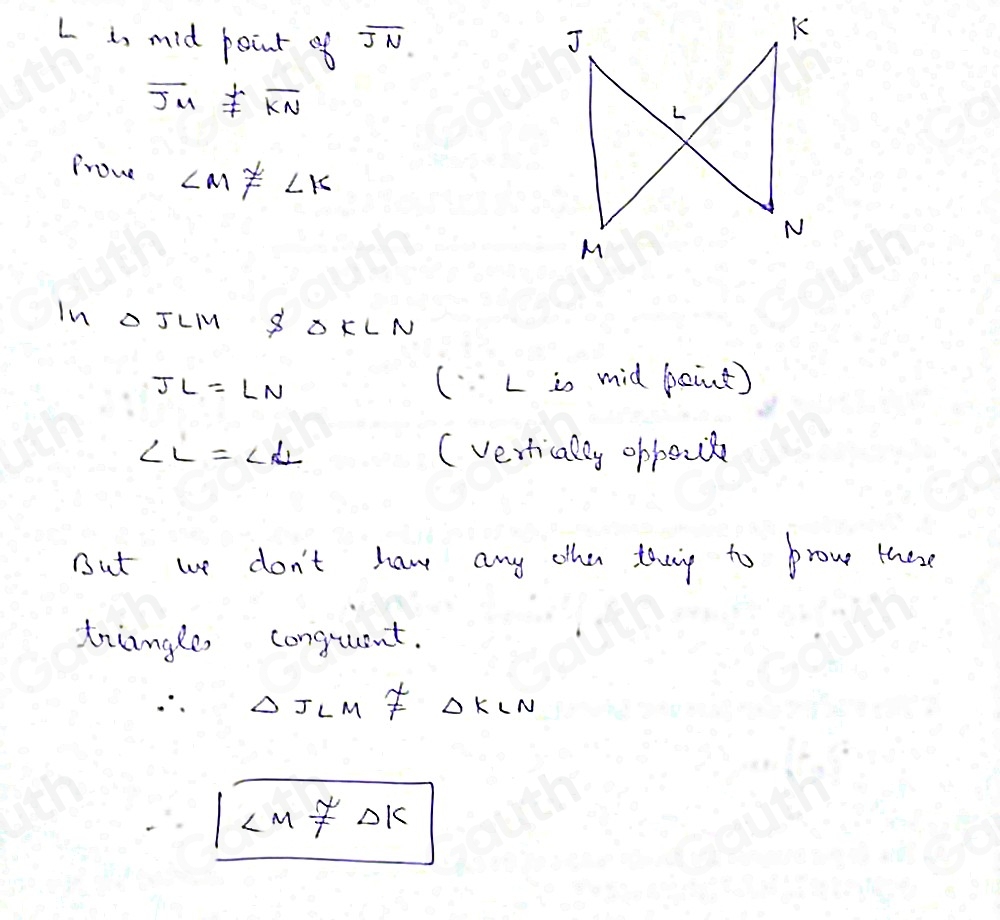 L is mid point of J̅N̅.
J̅M̅ ≠ K̅N̅
Prove ∠M ≇ ∠K
J
K
L
M
N
In △JLM & △KLN
JL = LN (∵ L is mid point)
∠L = ∠L (vertically opposite
But we don't have any other thing to prove these
triangles congruent.
∴ △JLM ≇ △KLN
∴ ∠M ≇ △K
Gauth